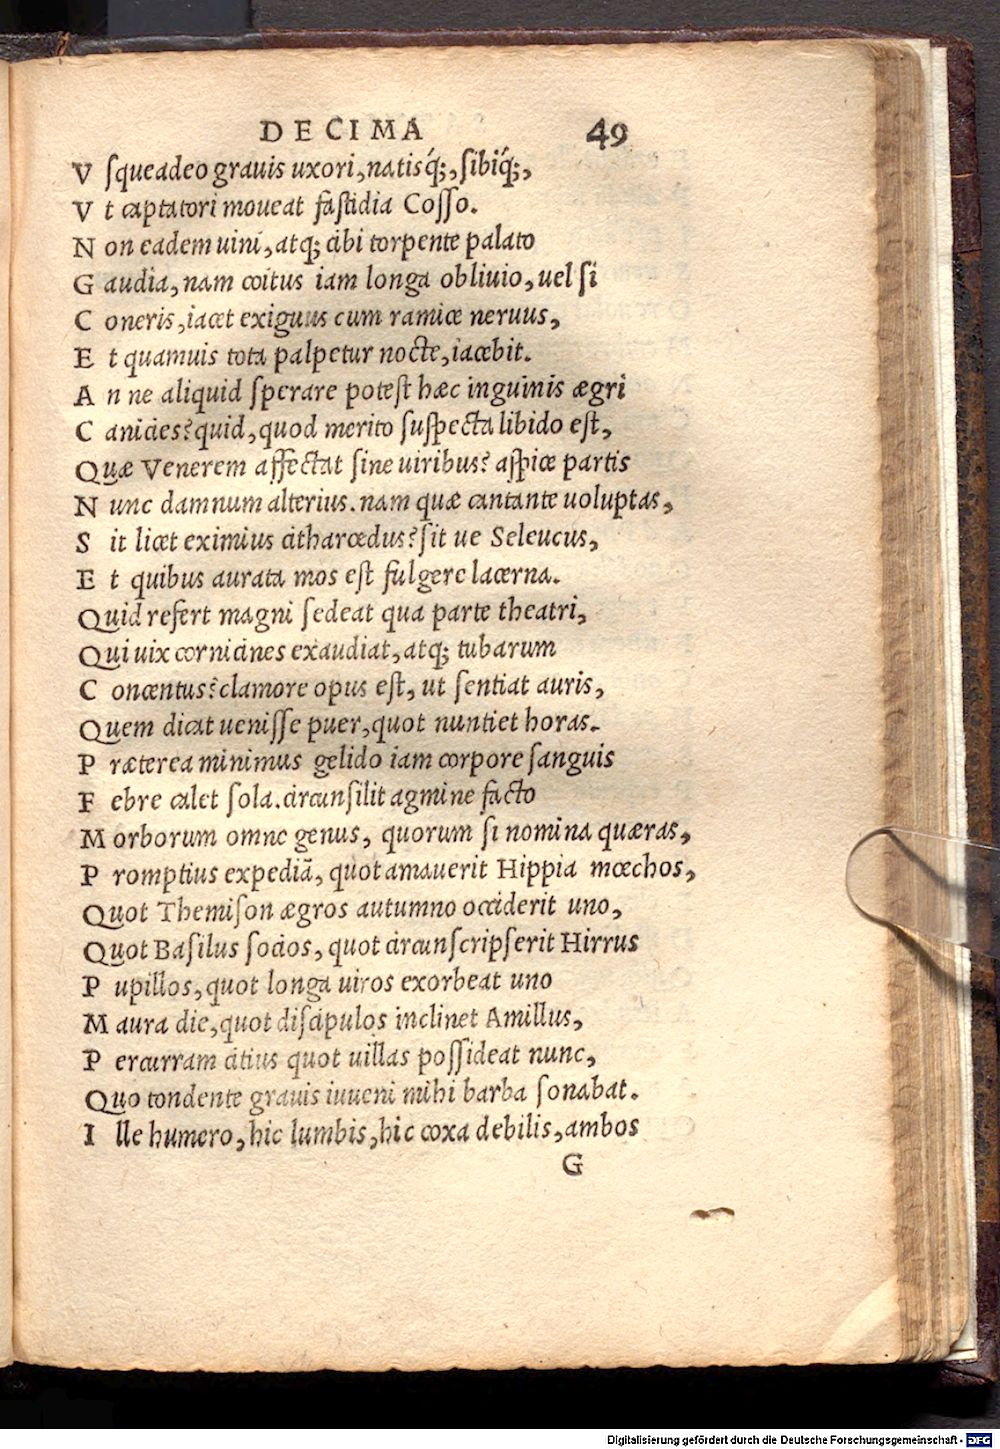 DECIMA 49
V sque adeo grauis uxori, natisq́;, sibiq́;,
V t captatori moueat fastidia Cosso.
N on eadem uini, atq; cibi torpente palato
G audia, nam coitus iam longa obliuio, uel si
C oneris, iacet exiguus cum ramice neruus,
E t quamuis tota palpetur nocte, iacebit.
A n ne aliquid sperare potest hæc inguinis ægri
C anicies? quid, quod merito suspecta libido est,
Quæ Venerem affectat sine uiribus? aspice partis
N unc damnum alterius. nam quæ cantante uoluptas,
S it licet eximius citharœdus? sit ue Seleucus,
E t quibus aurata mos est fulgere lacerna.
Quid refert magni sedeat qua parte theatri,
Qui uix cornicines exaudiat, atq; tubarum
C oncentus? clamore opus est, ut sentiat auris,
Quem dicat uenisse puer, quot nuntiet horas.
P ræterea minimus gelido iam corpore sanguis
F ebre calet sola. circunsilit agmine facto
M orborum omne genus, quorum si nomina quæras,
P romptius expediã, quot amauerit Hippia mœchos,
Quot Themison ægros autumno occiderit uno,
Quot Basilus socios, quot circunscripserit Hirrus
P upillos, quot longa uiros exorbeat uno
M aura die, quot discipulos inclinet Amillus,
P ercurram citius quot uillas possideat nunc,
Quo tondente grauis iuueni mihi barba sonabat.
I lle humero, hic lumbis, hic coxa debilis, ambos
G
Digitalisierung gefördert durch die Deutsche Forschungsgemeinschaft - DFG